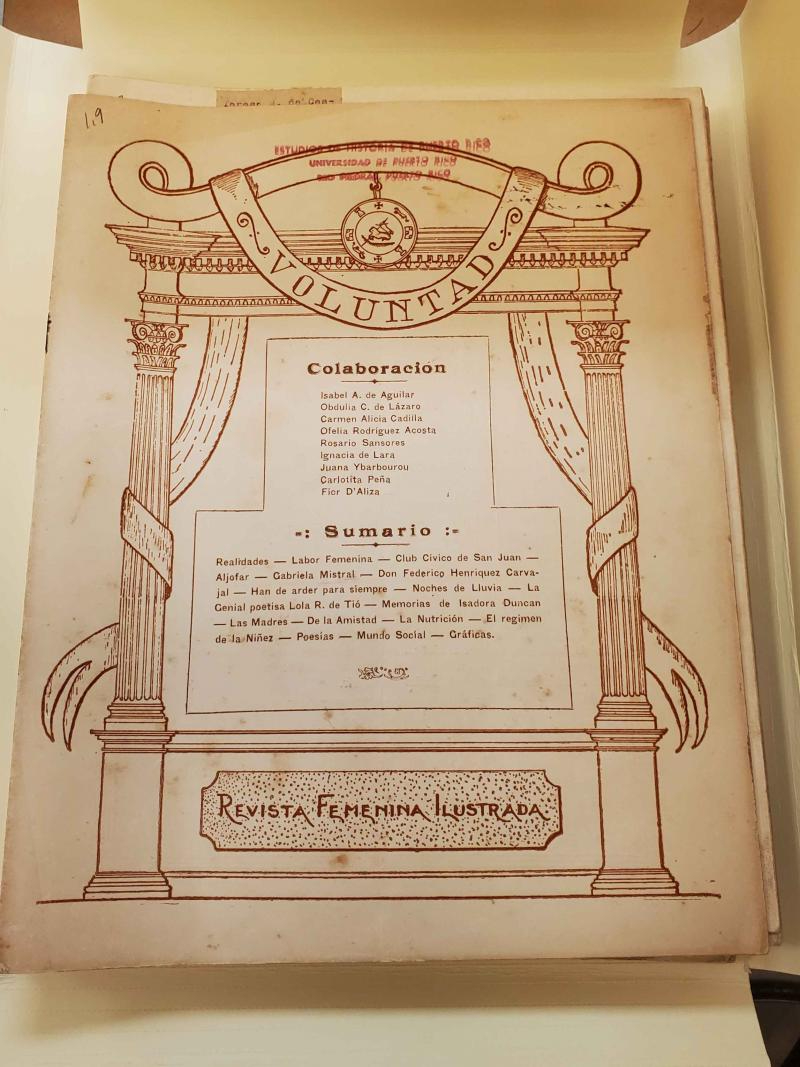 1,9
ESTUDIOS DE HISTORIA DE PUERTO RICO
UNIVERSIDAD DE PUERTO RICO
RIO PIEDRAS, PUERTO RICO
VOLUNTAD
Colaboración
Isabel A. de Aguilar
Obdulia C. de Lázaro
Carmen Alicia Cadilla
Ofelia Rodríguez Acosta
Rosario Sansores
Ignacia de Lara
Juana Ybarbourou
Carlotita Peña
Fior D'Aliza
-: Sumario :-
Realidades — Labor Femenina — Club Cívico de San Juan —
Aljofar — Gabriela Mistral — Don Federico Henriquez Carva-
jal — Han de arder para siempre — Noches de Lluvia — La
Genial poetisa Lola R. de Tió — Memorias de Isadora Duncan
— Las Madres — De la Amistad — La Nutrición — El regimen
de la Niñez — Poesías — Mundo Social — Gráficas.
REVISTA FEMENINA ILUSTRADA